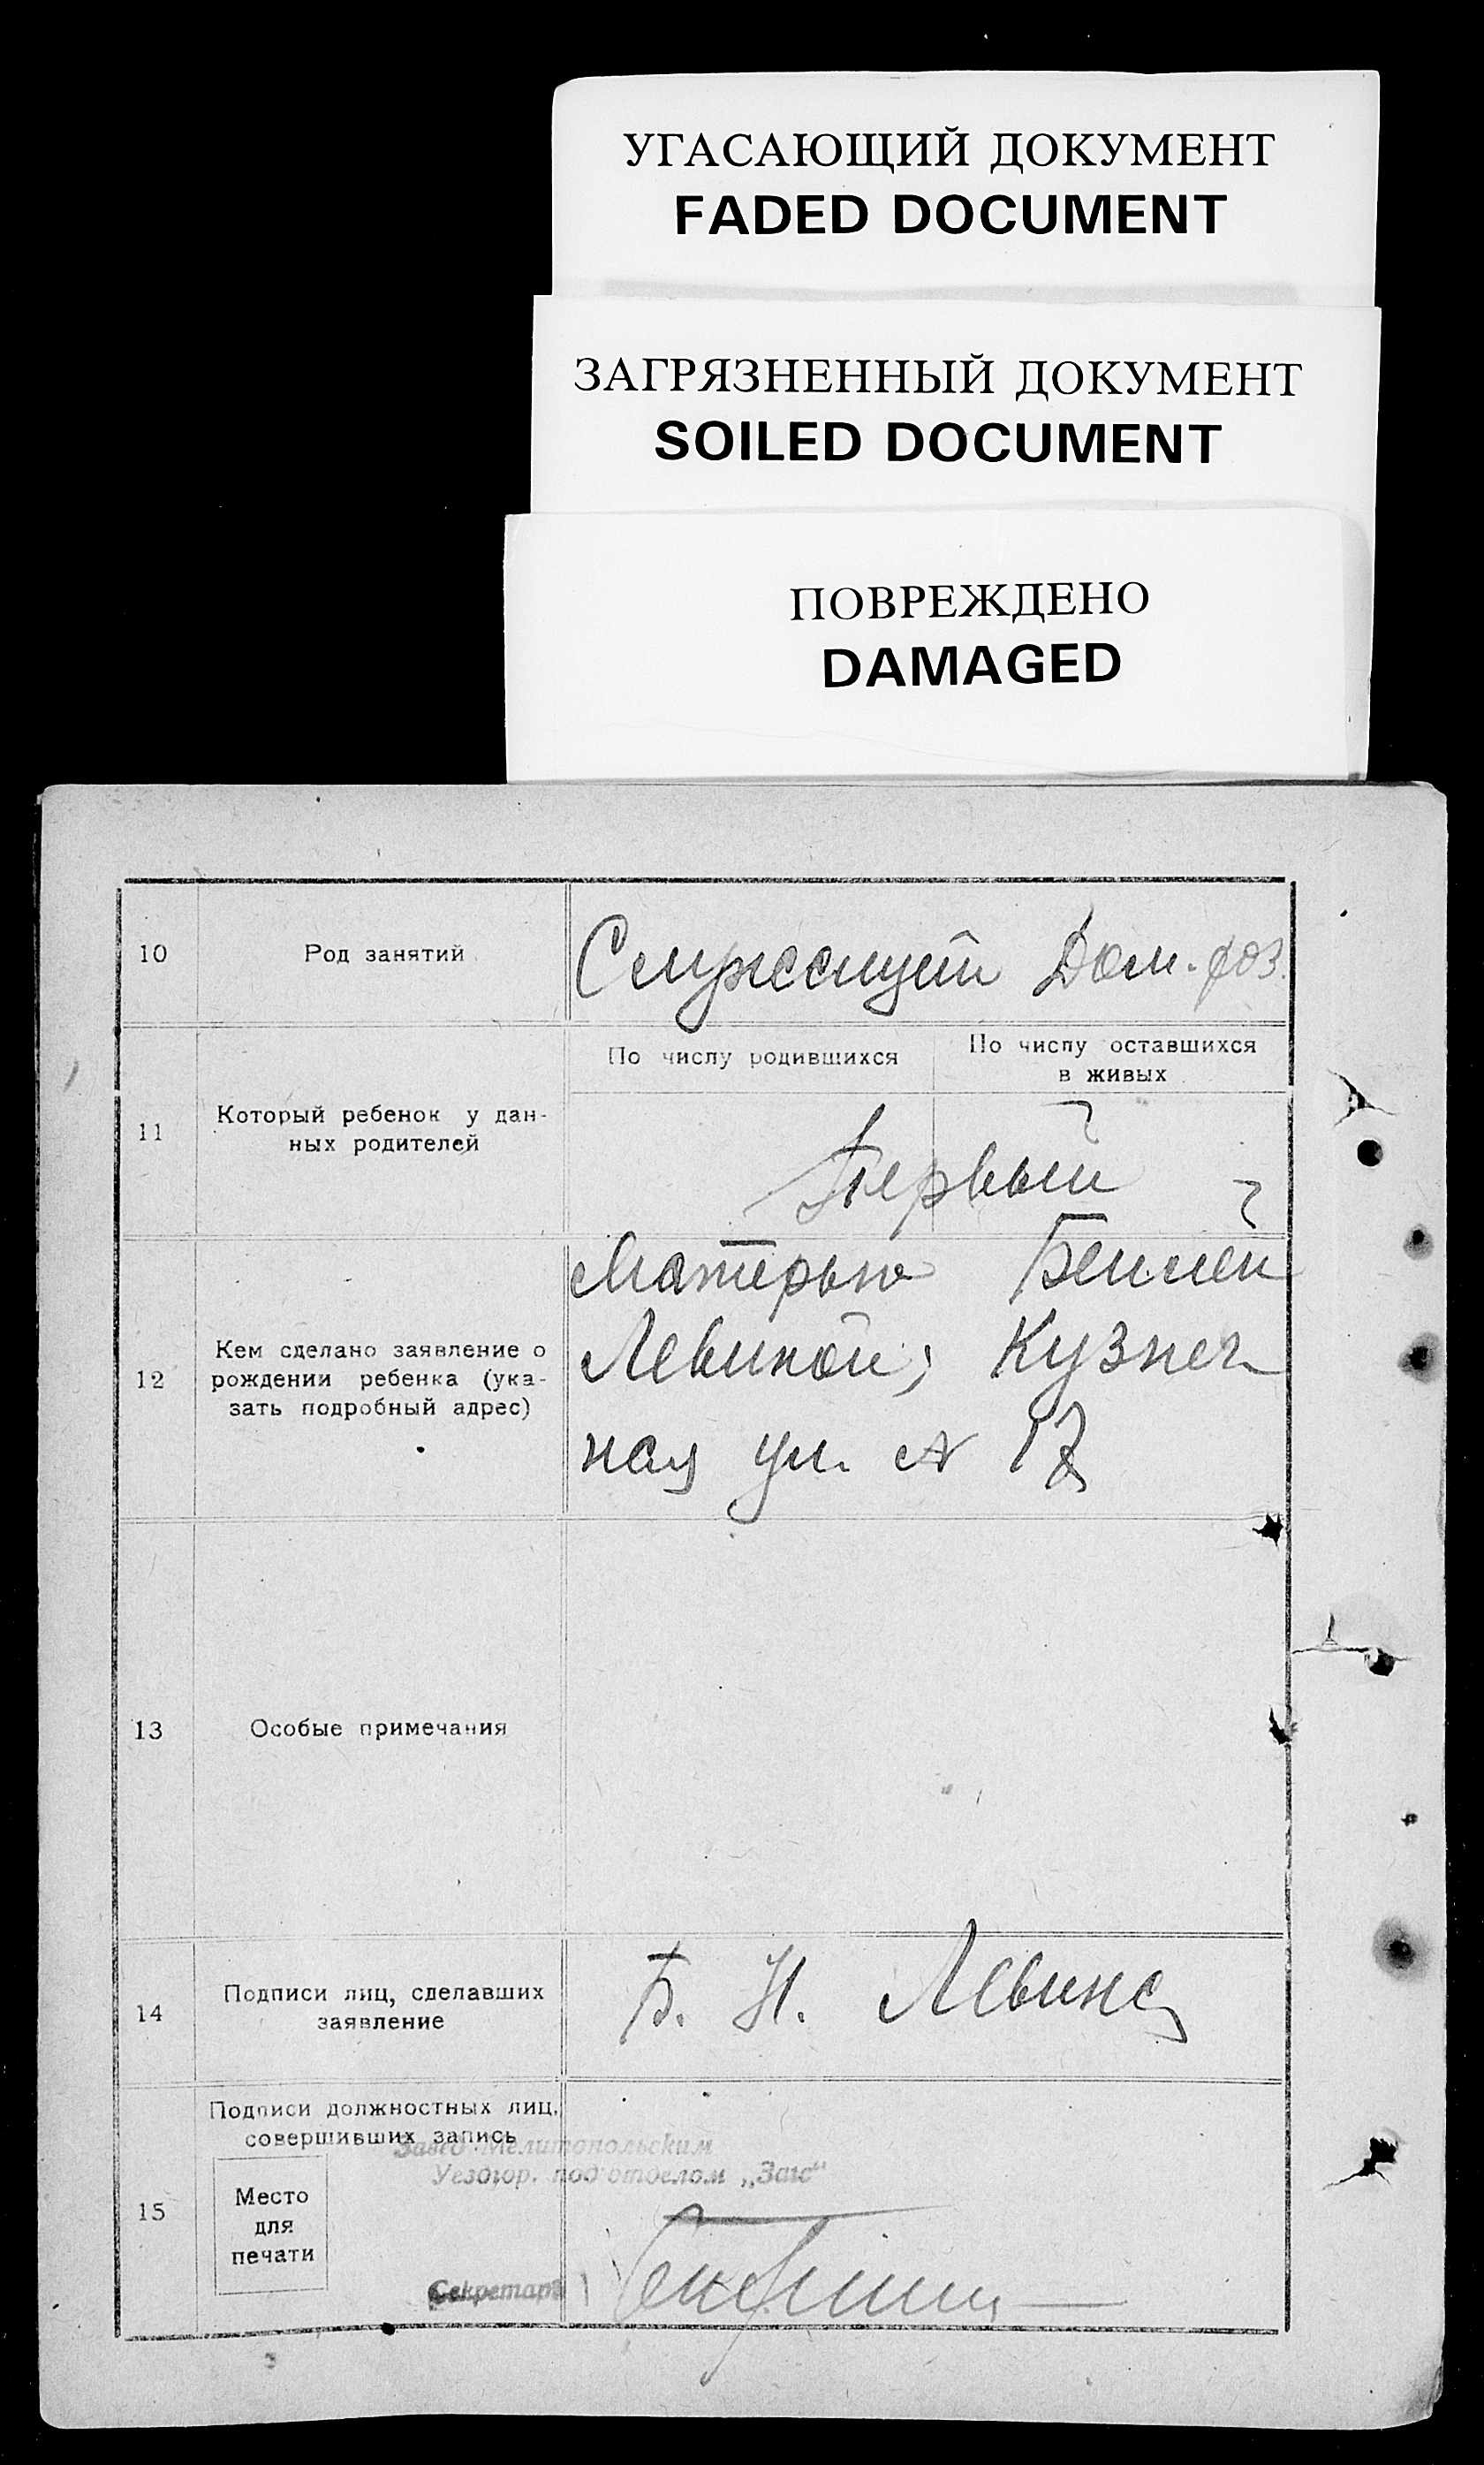 УГАСАЮЩИЙ ДОКУМЕНТ
FADED DOCUMENT
ЗАГРЯЗНЕННЫЙ ДОКУМЕНТ
SOILED DOCUMENT
ПОВРЕЖДЕНО
DAMAGED
10 Род занятий Служащий Дом. хоз.
11 Который ребенок у дан-
ных родителей
По числу родившихся
По числу оставшихся
в живых
Первый
12 Кем сделано заявление о
рождении ребенка (ука-
зать подробный адрес)
Матерью
Левиной; Кузнеч
ная ул. № 17
13 Особые примечания
14 Подписи лиц, сделавших
заявление
Б. Н. Левина
15 Подписи должностных лиц,
совершивших запись
Завед. Мелитопольским
Уездгор. подотделом „Загс"
Место
для
печати
Секретарь